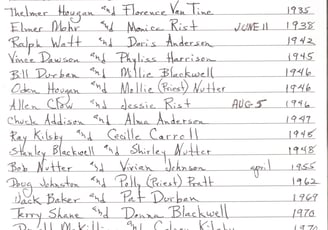 Thelmer Hougan and Florence Van Tine 1935
Elmer Mohr and Monica Rist JUNE 11 1938
Ralph Watt and Doris Anderson 1942
Vince Dawson and Phyliss Harrison 1945
Bill Durben and Milie Blackwell 1946
Oden Hougan and Mollie (Priest) Nutter 1946
Allen Clow and Jessie Rist AUG 5 1946
Chuck Addison and Alma Anderson 1947
Ray Kilsby and Cecille Carroll 1948
Stanley Blackwell and Shirley Nutter 1948
Bob Nutter and Vivian Johnson april 1955
Doug Johnston and Polly (Priest) Pratt 1962
Jack Baker and Pat Durban 1969
Terry Shane and Donna Blackwell 1970
and Kilsby 1970